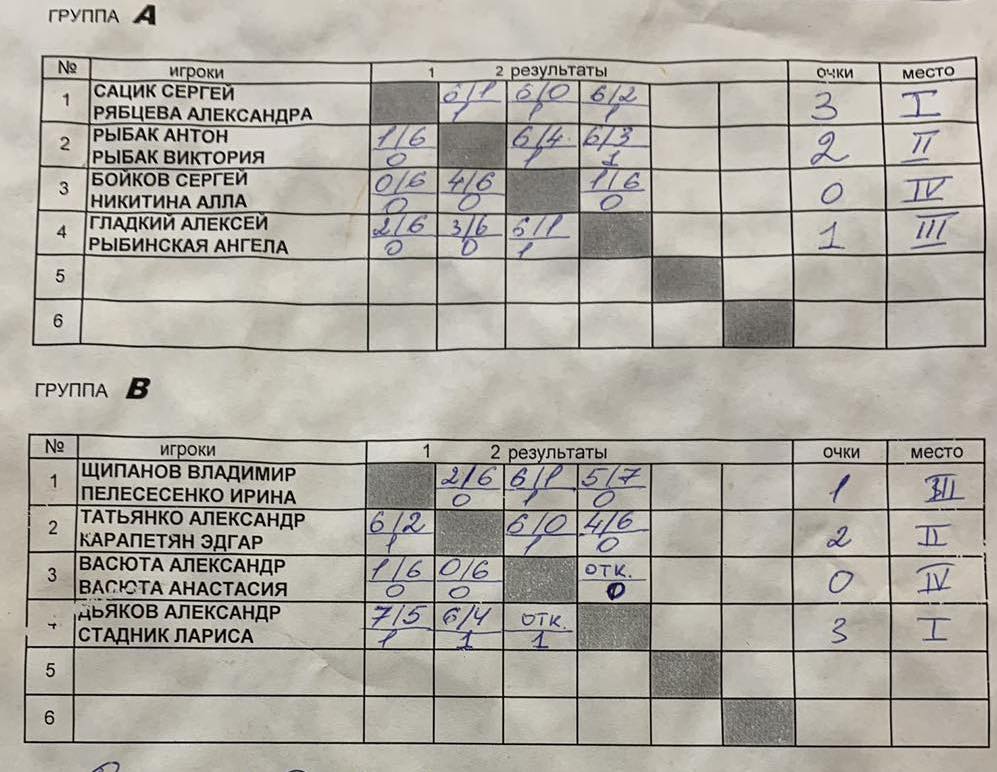 ГРУППА А
№ игроки 1 2 результаты очки место
1 САЦИК СЕРГЕЙ
РЯБЦЕВА АЛЕКСАНДРА
6/1 6/0 6/2 3 I
1 1 1
2 РЫБАК АНТОН
РЫБАК ВИКТОРИЯ
1/6 6/4 6/3 2 II
0 1 1
3 БОЙКОВ СЕРГЕЙ
НИКИТИНА АЛЛА
0/6 4/6 1/6 0 IV
0 0 0
4 ГЛАДКИЙ АЛЕКСЕЙ
РЫБИНСКАЯ АНГЕЛА
2/6 3/6 6/1 1 III
0 0 1
5
6
ГРУППА В
№ игроки 1 2 результаты очки место
1 ЩИПАНОВ ВЛАДИМИР
ПЕЛЕСЕСЕНКО ИРИНА
2/6 6/1 5/7 1 III
0 1 0
2 ТАТЬЯНКО АЛЕКСАНДР
КАРАПЕТЯН ЭДГАР
6/2 6/0 4/6 2 II
1 1 0
3 ВАСЮТА АЛЕКСАНДР
ВАСЮТА АНАСТАСИЯ
1/6 0/6 отк. 0 IV
0 0 0
4 ДЬЯКОВ АЛЕКСАНДР
СТАДНИК ЛАРИСА
7/5 6/4 отк. 3 I
1 1 1
5
6